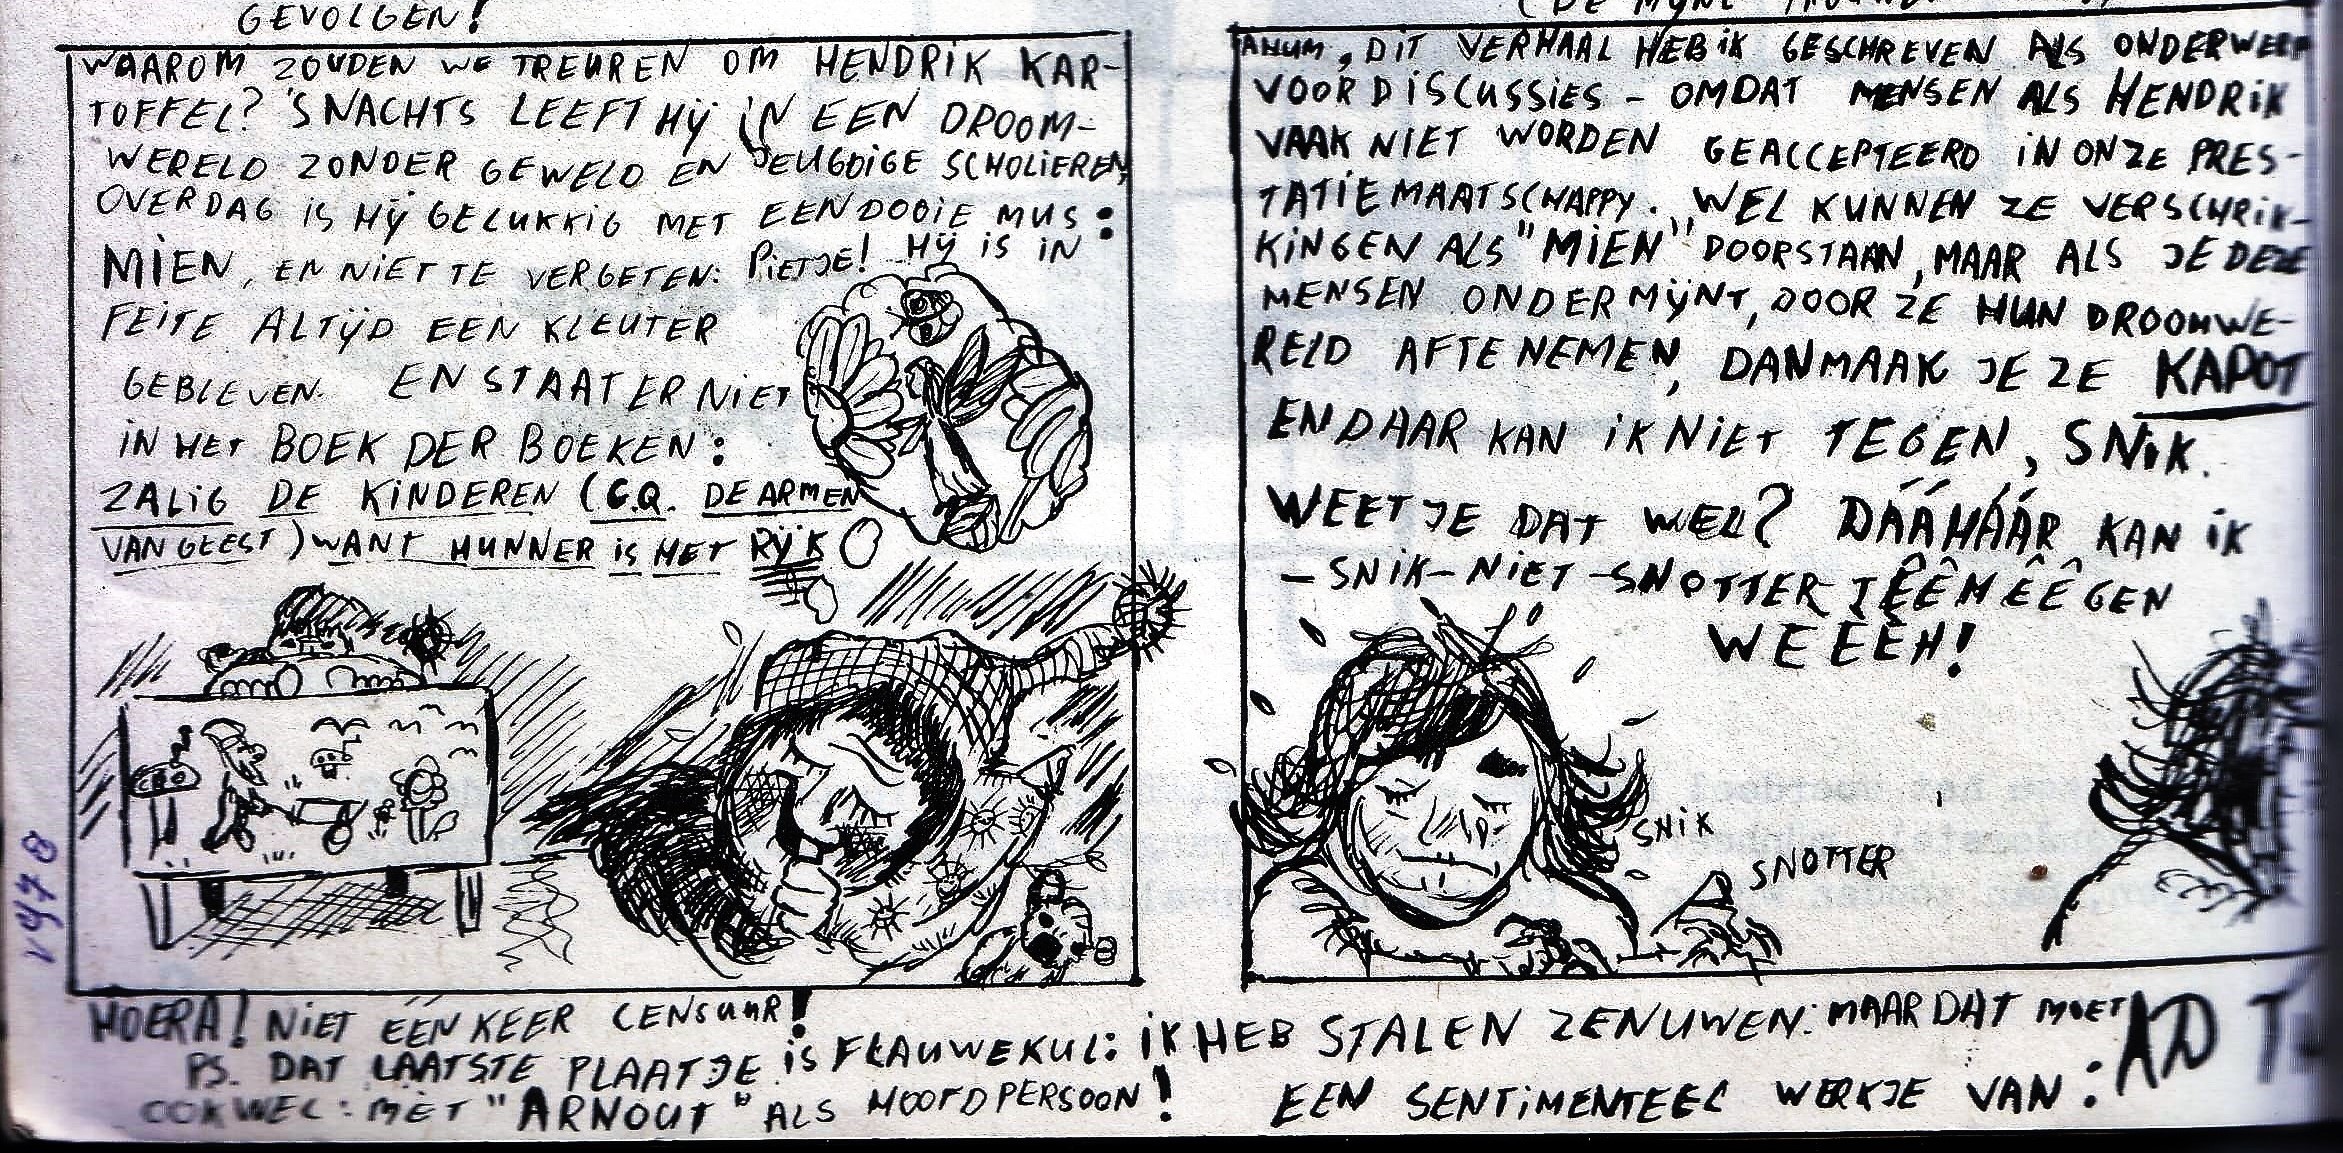 GEVOLGEN!
(DE MIJNE
WAAROM ZOUDEN WE TREUREN OM HENDRIK KAR-
TOFFEL? 'S NACHTS LEEFT HIJ IN EEN DROOM-
WERELD ZONDER GEWELD EN JEUGDIGE SCHOLIEREN,
OVERDAG IS HIJ GELUKKIG MET EEN DOOIE MUS:
MIEN, EN NIET TE VERGETEN: PIETJE! HIJ IS IN
FEITE ALTIJD EEN KLEUTER
GEBLEVEN. EN STAAT ER NIET
IN HET BOEK DER BOEKEN:
ZALIG DE KINDEREN (C.Q. DE ARMEN
VAN GEEST) WANT HUNNER IS HET RIJK
AHUM, DIT VERHAAL HEB IK GESCHREVEN ALS ONDERWERP
VOOR DISCUSSIES - OMDAT MENSEN ALS HENDRIK
VAAK NIET WORDEN GEACCEPTEERD IN ONZE PRES-
TATIEMAATSCHAPPY. WEL KUNNEN ZE VERSCHRIK-
KINGEN ALS "MIEN" DOORSTAAN, MAAR ALS JE DEZE
MENSEN ONDERMIJNT, DOOR ZE HUN DROOMWE-
RELD AF TE NEMEN, DAN MAAK JE ZE KAPOT
EN DAAR KAN IK NIET TEGEN, SNIK.
WEET JE DAT WEL? DÁÁHÁÁR KAN IK
- SNIK - NIET - SNOTTER TÊÊHÊÊGEN
WEEËH!
SNIK
SNOTTER
1978
HOERA! NIET ÉÉN KEER CENSUUR!
PS. DAT LAATSTE PLAATJE IS FLAUWEKUL: IK HEB STALEN ZENUWEN: MAAR DAT MOET
OOK WEL: MET "ARNOUT" ALS HOOFDPERSOON!
EEN SENTIMENTEEL WERKJE VAN: AD